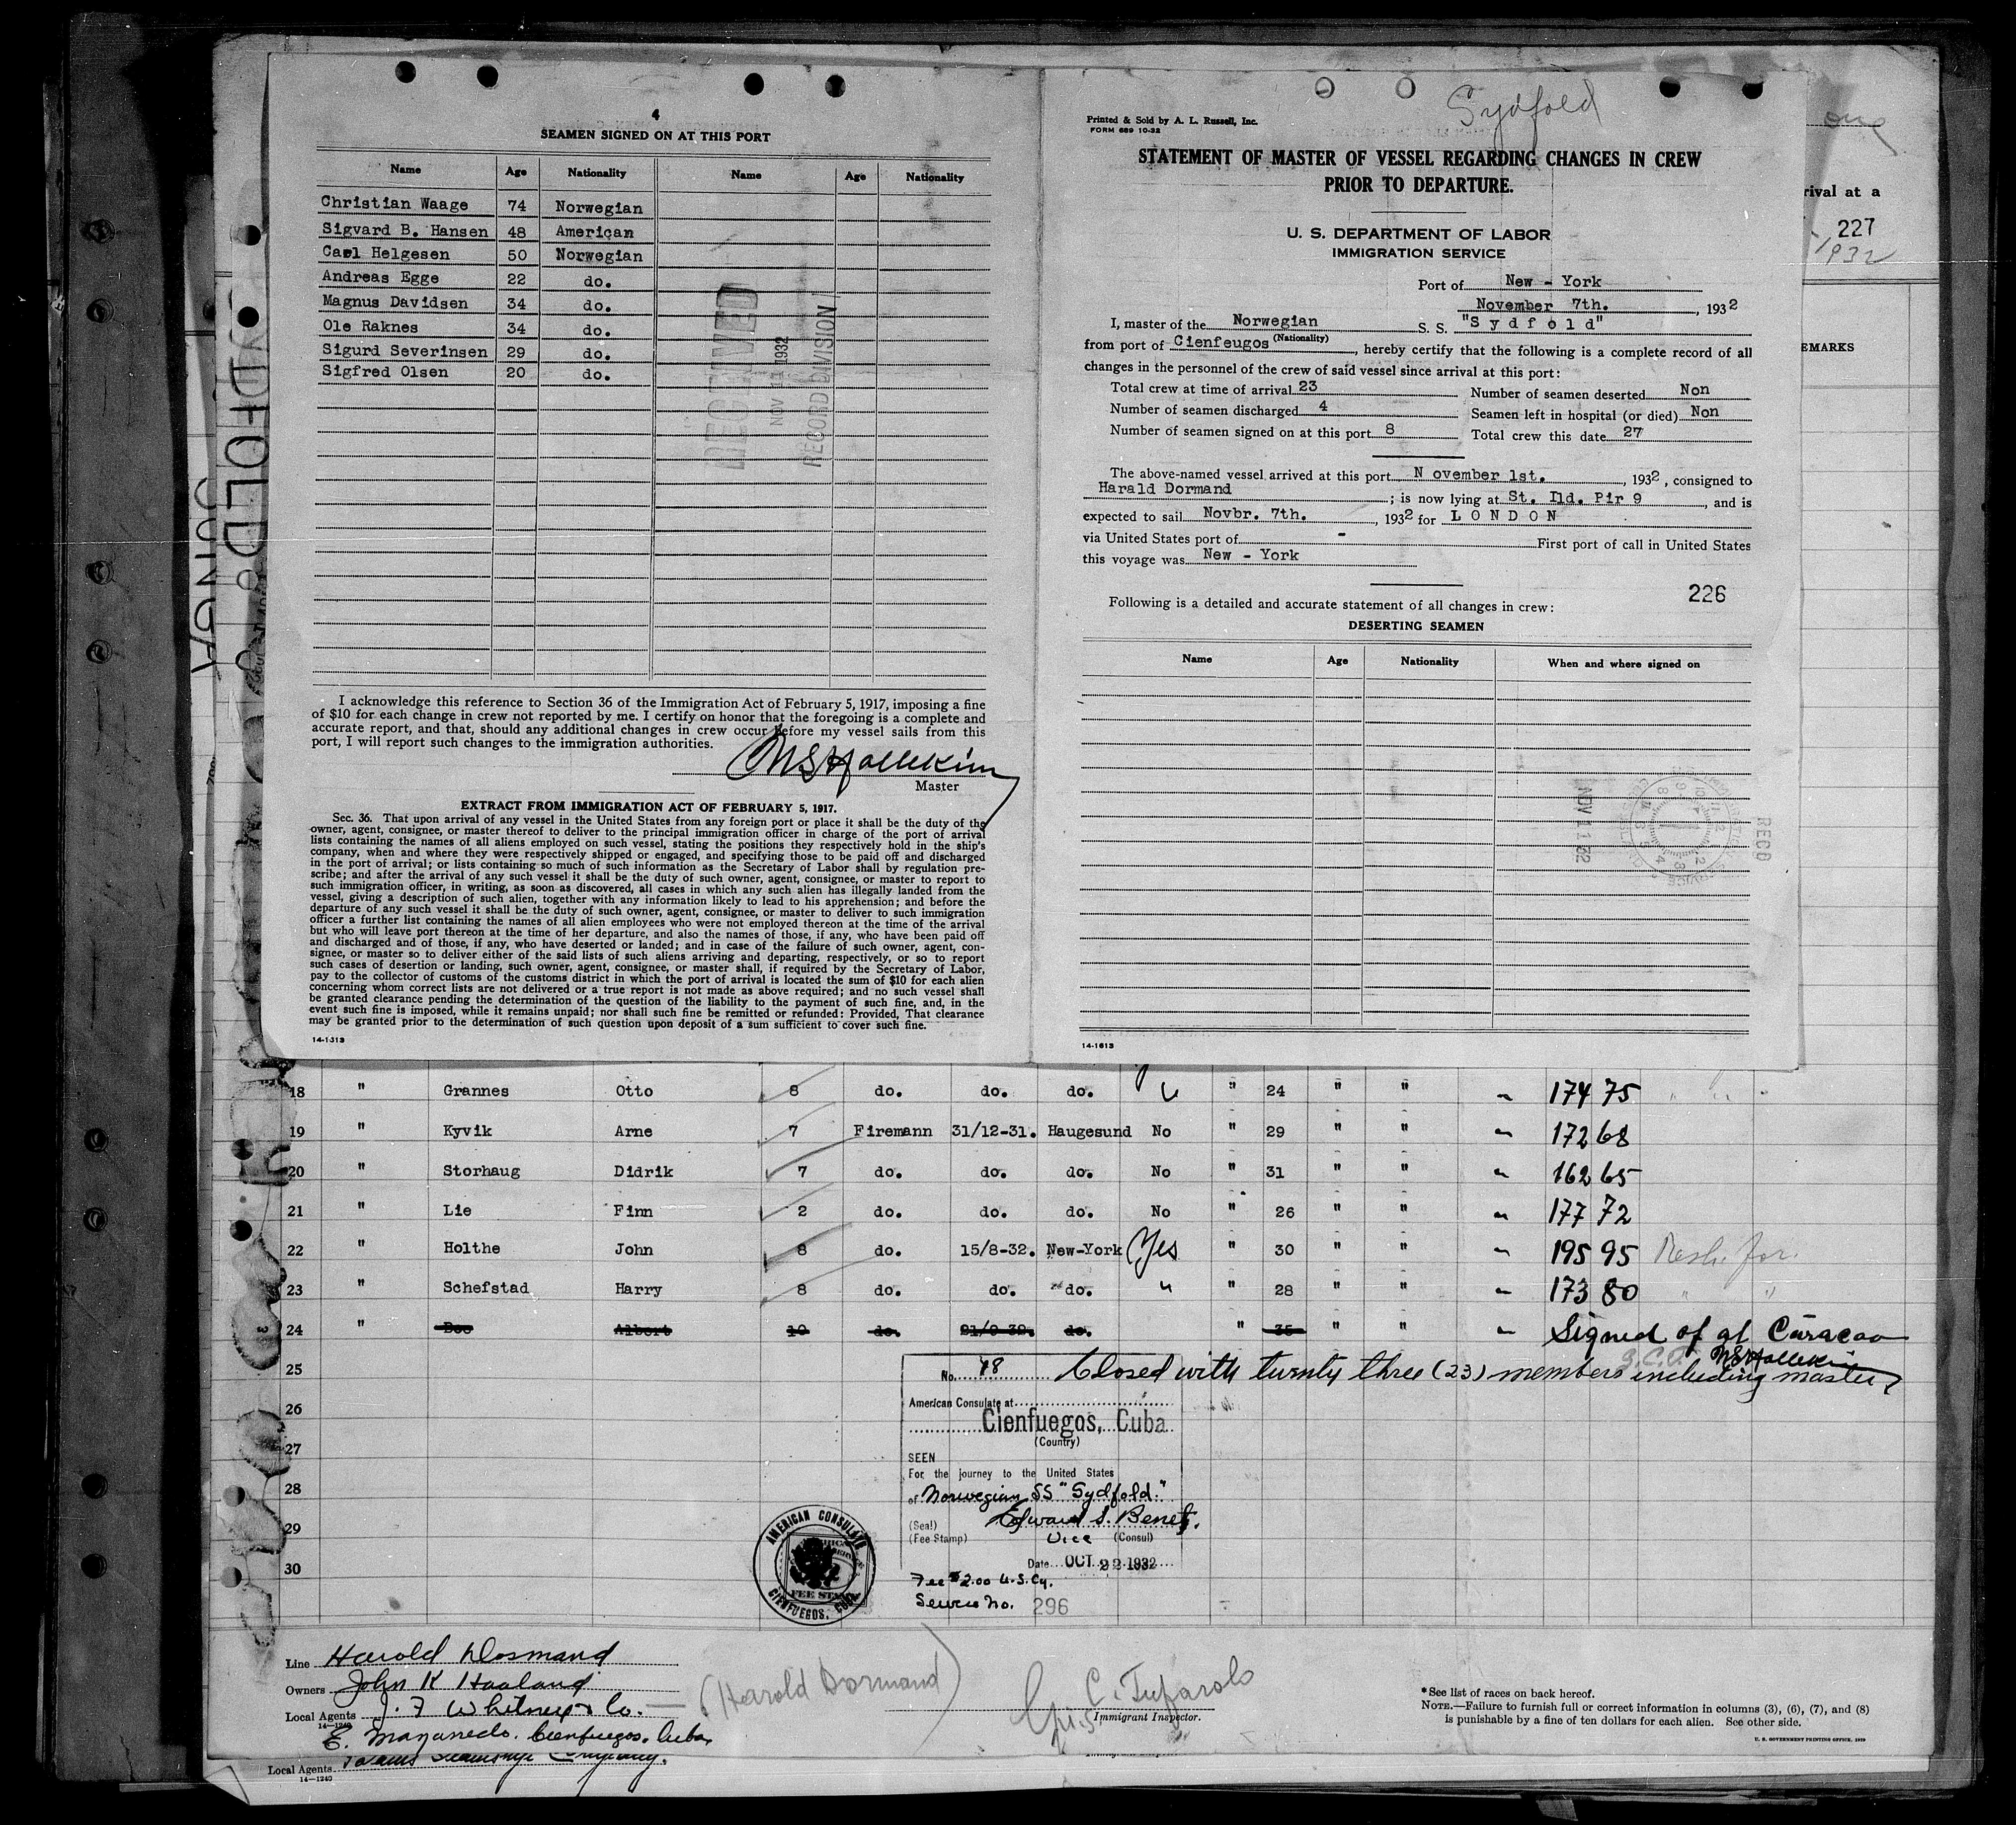 4
SEAMEN SIGNED ON AT THIS PORT
Name Age Nationality Name Age Nationality
Christian Waage 74 Norwegian
Sigvard B. Hansen 48 American
Carl Helgesen 50 Norwegian
Andreas Egge 22 do.
Magnus Davidsen 34 do.
Ole Raknes 34 do.
Sigurd Severinsen 29 do.
Sigfred Olsen 20 do.
RECEIVED
NOV 11 1932
RECORD DIVISION
I acknowledge this reference to Section 36 of the Immigration Act of February 5, 1917, imposing a fine
of $10 for each change in crew not reported by me. I certify on honor that the foregoing is a complete and
accurate report, and that, should any additional changes in crew occur before my vessel sails from this
port, I will report such changes to the immigration authorities.
MSHallekim
Master
EXTRACT FROM IMMIGRATION ACT OF FEBRUARY 5, 1917.
Sec. 36. That upon arrival of any vessel in the United States from any foreign port or place it shall be the duty of the
owner, agent, consignee, or master thereof to deliver to the principal immigration officer in charge of the port of arrival
lists containing the names of all aliens employed on such vessel, stating the positions they respectively hold in the ship's
company, when and where they were respectively shipped or engaged, and specifying those to be paid off and discharged
in the port of arrival; or lists containing so much of such information as the Secretary of Labor shall by regulation pre-
scribe; and after the arrival of any such vessel it shall be the duty of such owner, agent, consignee, or master to report to
such immigration officer, in writing, as soon as discovered, all cases in which any such alien has illegally landed from the
vessel, giving a description of such alien, together with any information likely to lead to his apprehension; and before the
departure of any such vessel it shall be the duty of such owner, agent, consignee, or master to deliver to such immigration
officer a further list containing the names of all alien employees who were not employed thereon at the time of the arrival
but who will leave port thereon at the time of her departure, and also the names of those, if any, who have been paid off
and discharged and of those, if any, who have deserted or landed; and in case of the failure of such owner, agent, con-
signee, or master so to deliver either of the said lists of such aliens arriving and departing, respectively, or so to report
such cases of desertion or landing, such owner, agent, consignee, or master shall, if required by the Secretary of Labor,
pay to the collector of customs of the customs district in which the port of arrival is located the sum of $10 for each alien
concerning whom correct lists are not delivered or a true report is not made as above required; and no such vessel shall
be granted clearance pending the determination of the question of the liability to the payment of such fine, and, in the
event such fine is imposed, while it remains unpaid; nor shall such fine be remitted or refunded: Provided, That clearance
may be granted prior to the determination of such question upon deposit of a sum sufficient to cover such fine.
14-1313
Sydfold
Printed & Sold by A. L. Russell, Inc.
FORM 689 10-32
STATEMENT OF MASTER OF VESSEL REGARDING CHANGES IN CREW
PRIOR TO DEPARTURE.
U. S. DEPARTMENT OF LABOR
IMMIGRATION SERVICE
Port of New - York
November 7th. , 1932
I, master of the Norwegian S. S. "Sydfold"
(Nationality)
from port of Cienfeugos , hereby certify that the following is a complete record of all
changes in the personnel of the crew of said vessel since arrival at this port:
Total crew at time of arrival 23 Number of seamen deserted Non
Number of seamen discharged 4 Seamen left in hospital (or died) Non
Number of seamen signed on at this port 8 Total crew this date 27
The above-named vessel arrived at this port N ovember 1st. , 1932 , consigned to
Harald Dormand ; is now lying at St. Ild. Pir 9 , and is
expected to sail Novbr. 7th. , 1932 for LONDON
via United States port of - First port of call in United States
this voyage was New - York
226
Following is a detailed and accurate statement of all changes in crew:
DESERTING SEAMEN
Name Age Nationality When and where signed on
NOV 11 32
RECD
14-1613
rival at a
227
1932
EMARKS
SYDFOLD
18 " Grannes Otto 8 do. do. do. " 24 " " " 174 75
19 " Kyvik Arne 7 Firemann 31/12-31. Haugesund No " 29 " " " 172 68
20 " Storhaug Didrik 7 do. do. do. No " 31 " " " 162 65
21 " Lie Finn 2 do. do. do. No " 26 " " " 177 72
22 " Holthe John 8 do. 15/8-32. New-York Yes " 30 " " " 195 95 Resh. for.
23 " Schefstad Harry 8 do. do. do. " " 28 " " " 173 80 " "
24 " Doe Albert 10 do. 21/9-32. do. " 35 " " " Signed of at Curacao
MSHallekim
25 No. 78 Closed with twenty three (23) members including master
26 American Consulate at
Cienfuegos, Cuba
(Country)
27
SEEN
For the journey to the United States
28 of Norwegian SS "Sydfold."
Edward S. Benet.
29 (Seal)
(Fee Stamp) Vice (Consul)
Date OCT 22 1932
30
Fee $2.00 U.S.Cy.
Service No. 296
AMERICAN CONSULATE
CIENFUEGOS, CUBA
FEE STAMP
Line Harold Dormand
Owners John K Haaland
Local Agents J. F Whitney & Co. (Harold Dormand)
14-1240
E. Mazanedo. Cienfuegos. Cuba.
C. Tufarolo
Immigrant Inspector.
*See list of races on back hereof.
NOTE.—Failure to furnish full or correct information in columns (3), (6), (7), and (8)
is punishable by a fine of ten dollars for each alien. See other side.
U. S. GOVERNMENT PRINTING OFFICE, 1929
Local Agents
14-1240